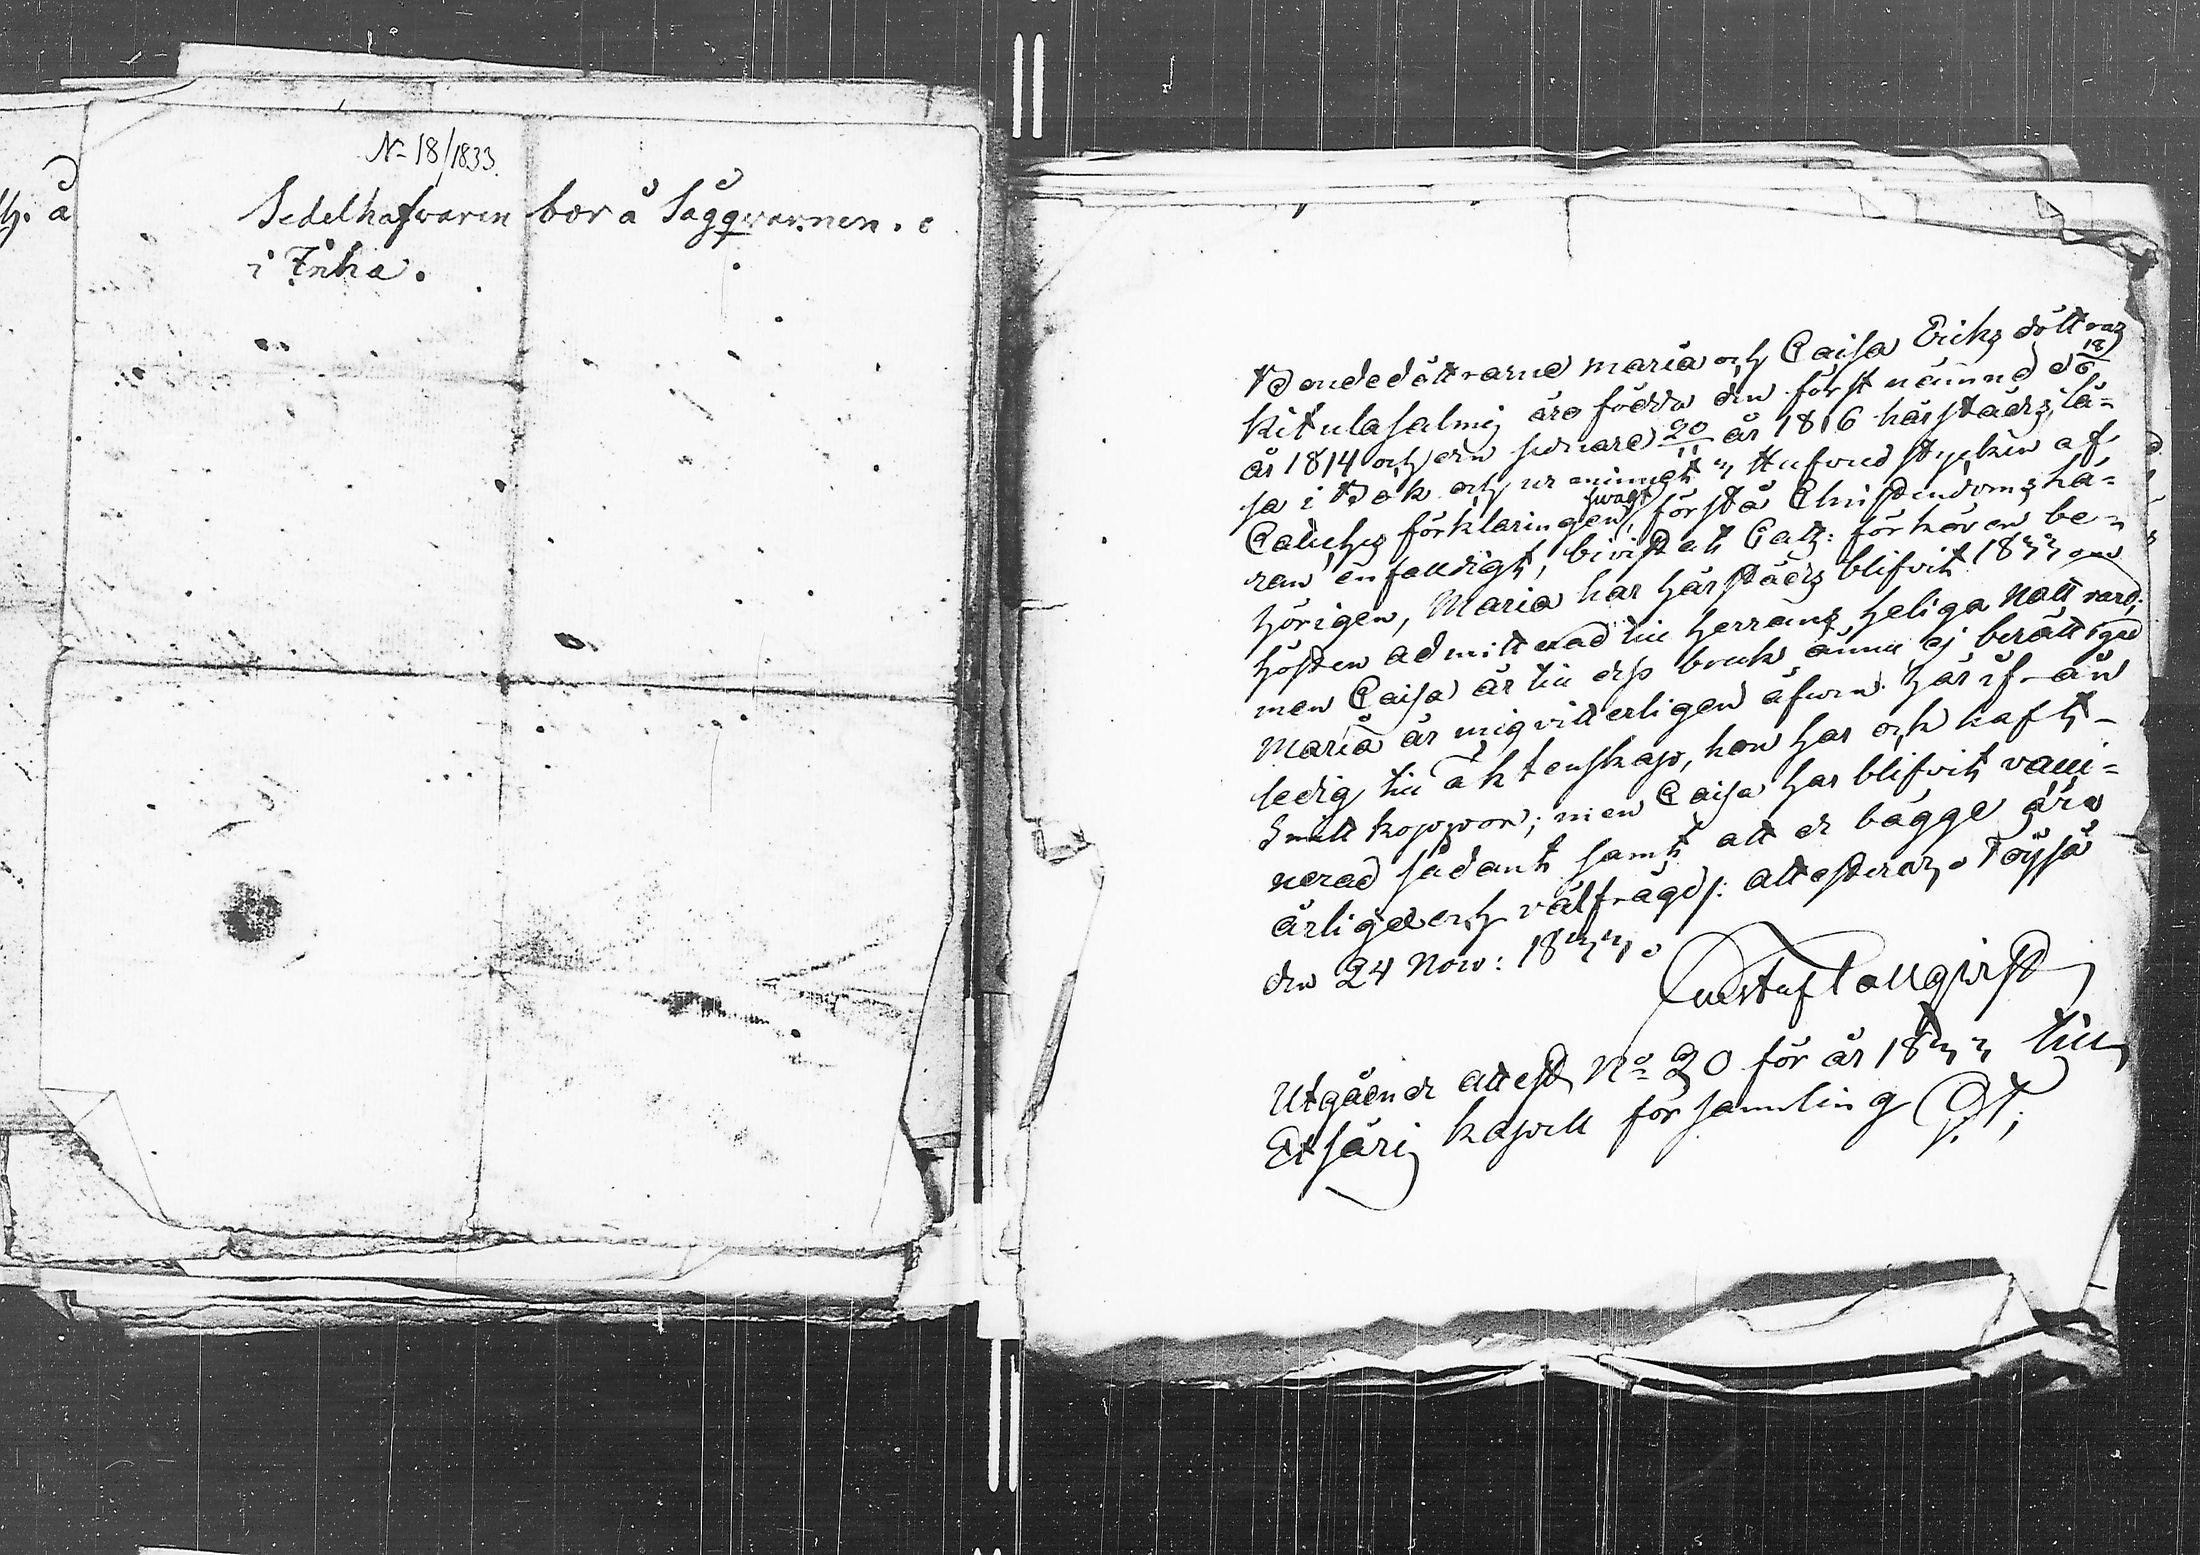 N= 18/1833.
h. å
Sedelhafvaren bor å Sågqvarnen.
i Inha.
Bondedöttrarne Maria och Caisa Eriks döttrar
Kitulasalmi äro födda den förstnämnde d 18/6
år 1814 och den sednare 20/11 år 1816 härstädes, lä=
sa i Bok och ur minnet Hufvudstycken af
Cateches förklaringen svagt, förstå Christendoms lä=
ran enfaldigt, bivistat Cat: förhören be=
hörigen, Maria har härstädes blifvit 1833 om
hösten admitterad till Herrans Heliga Nattvard;
men Caisa är till dess bruk ännu ej berättigad
Maria är mig vitterligen äfven härifrån
ledig till äktenskap, hon har ock haft
Smittkoppor; men Caisa har blifvit vacci=
nerad sådant samt att de bägge äro
ärliga och välfrägds: attesterar, Töysä
den 24 Nov: 1833.
Gustaf Tallqvist
Utgående attest No= 20 för år 1833 till
Etsäri kapell församling G. T.